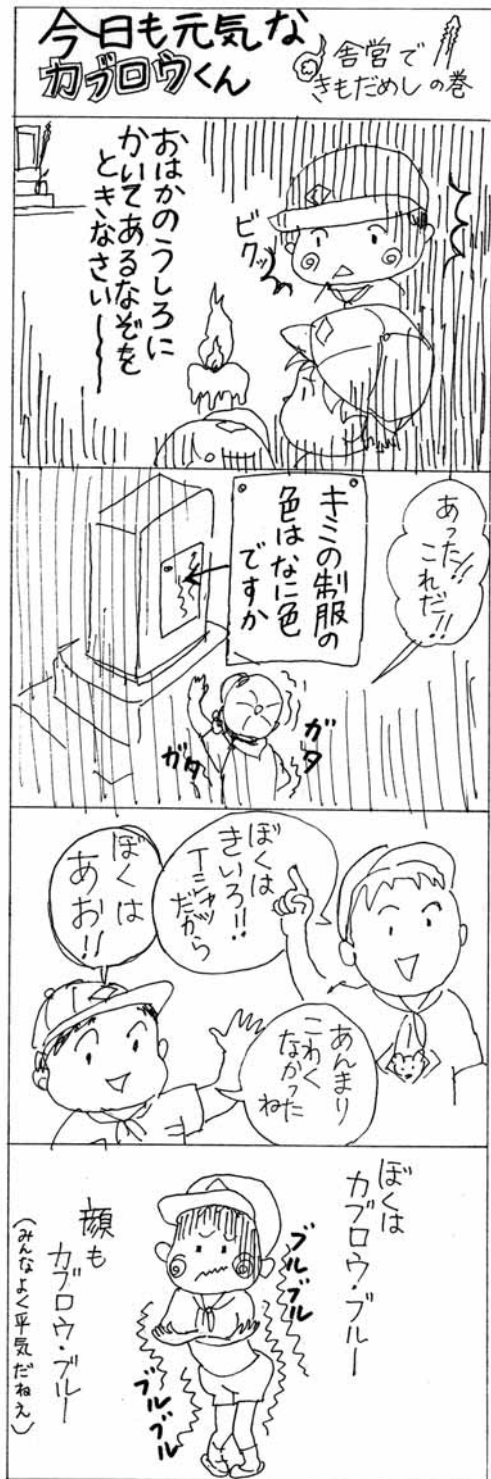 今日も元気な
カブロウくん
舎営で
きもだめしの巻
ビクッ
おはかのうしろに
かいてあるなぞを
ときなさい〜
あった!!
これだ!!
キミの制服の
色はなに色
ですか
ガタ
ガタ
ぼくは
きいろ!!
Tシャツ
だから
ぼくは
あお!!
あんまり
こわく
なかった
ね
ぼくは
カブロウ・ブルー
ブルブル
ブルブル
顔も
カブロウ・ブルー
(みんなよく平気だねえ)